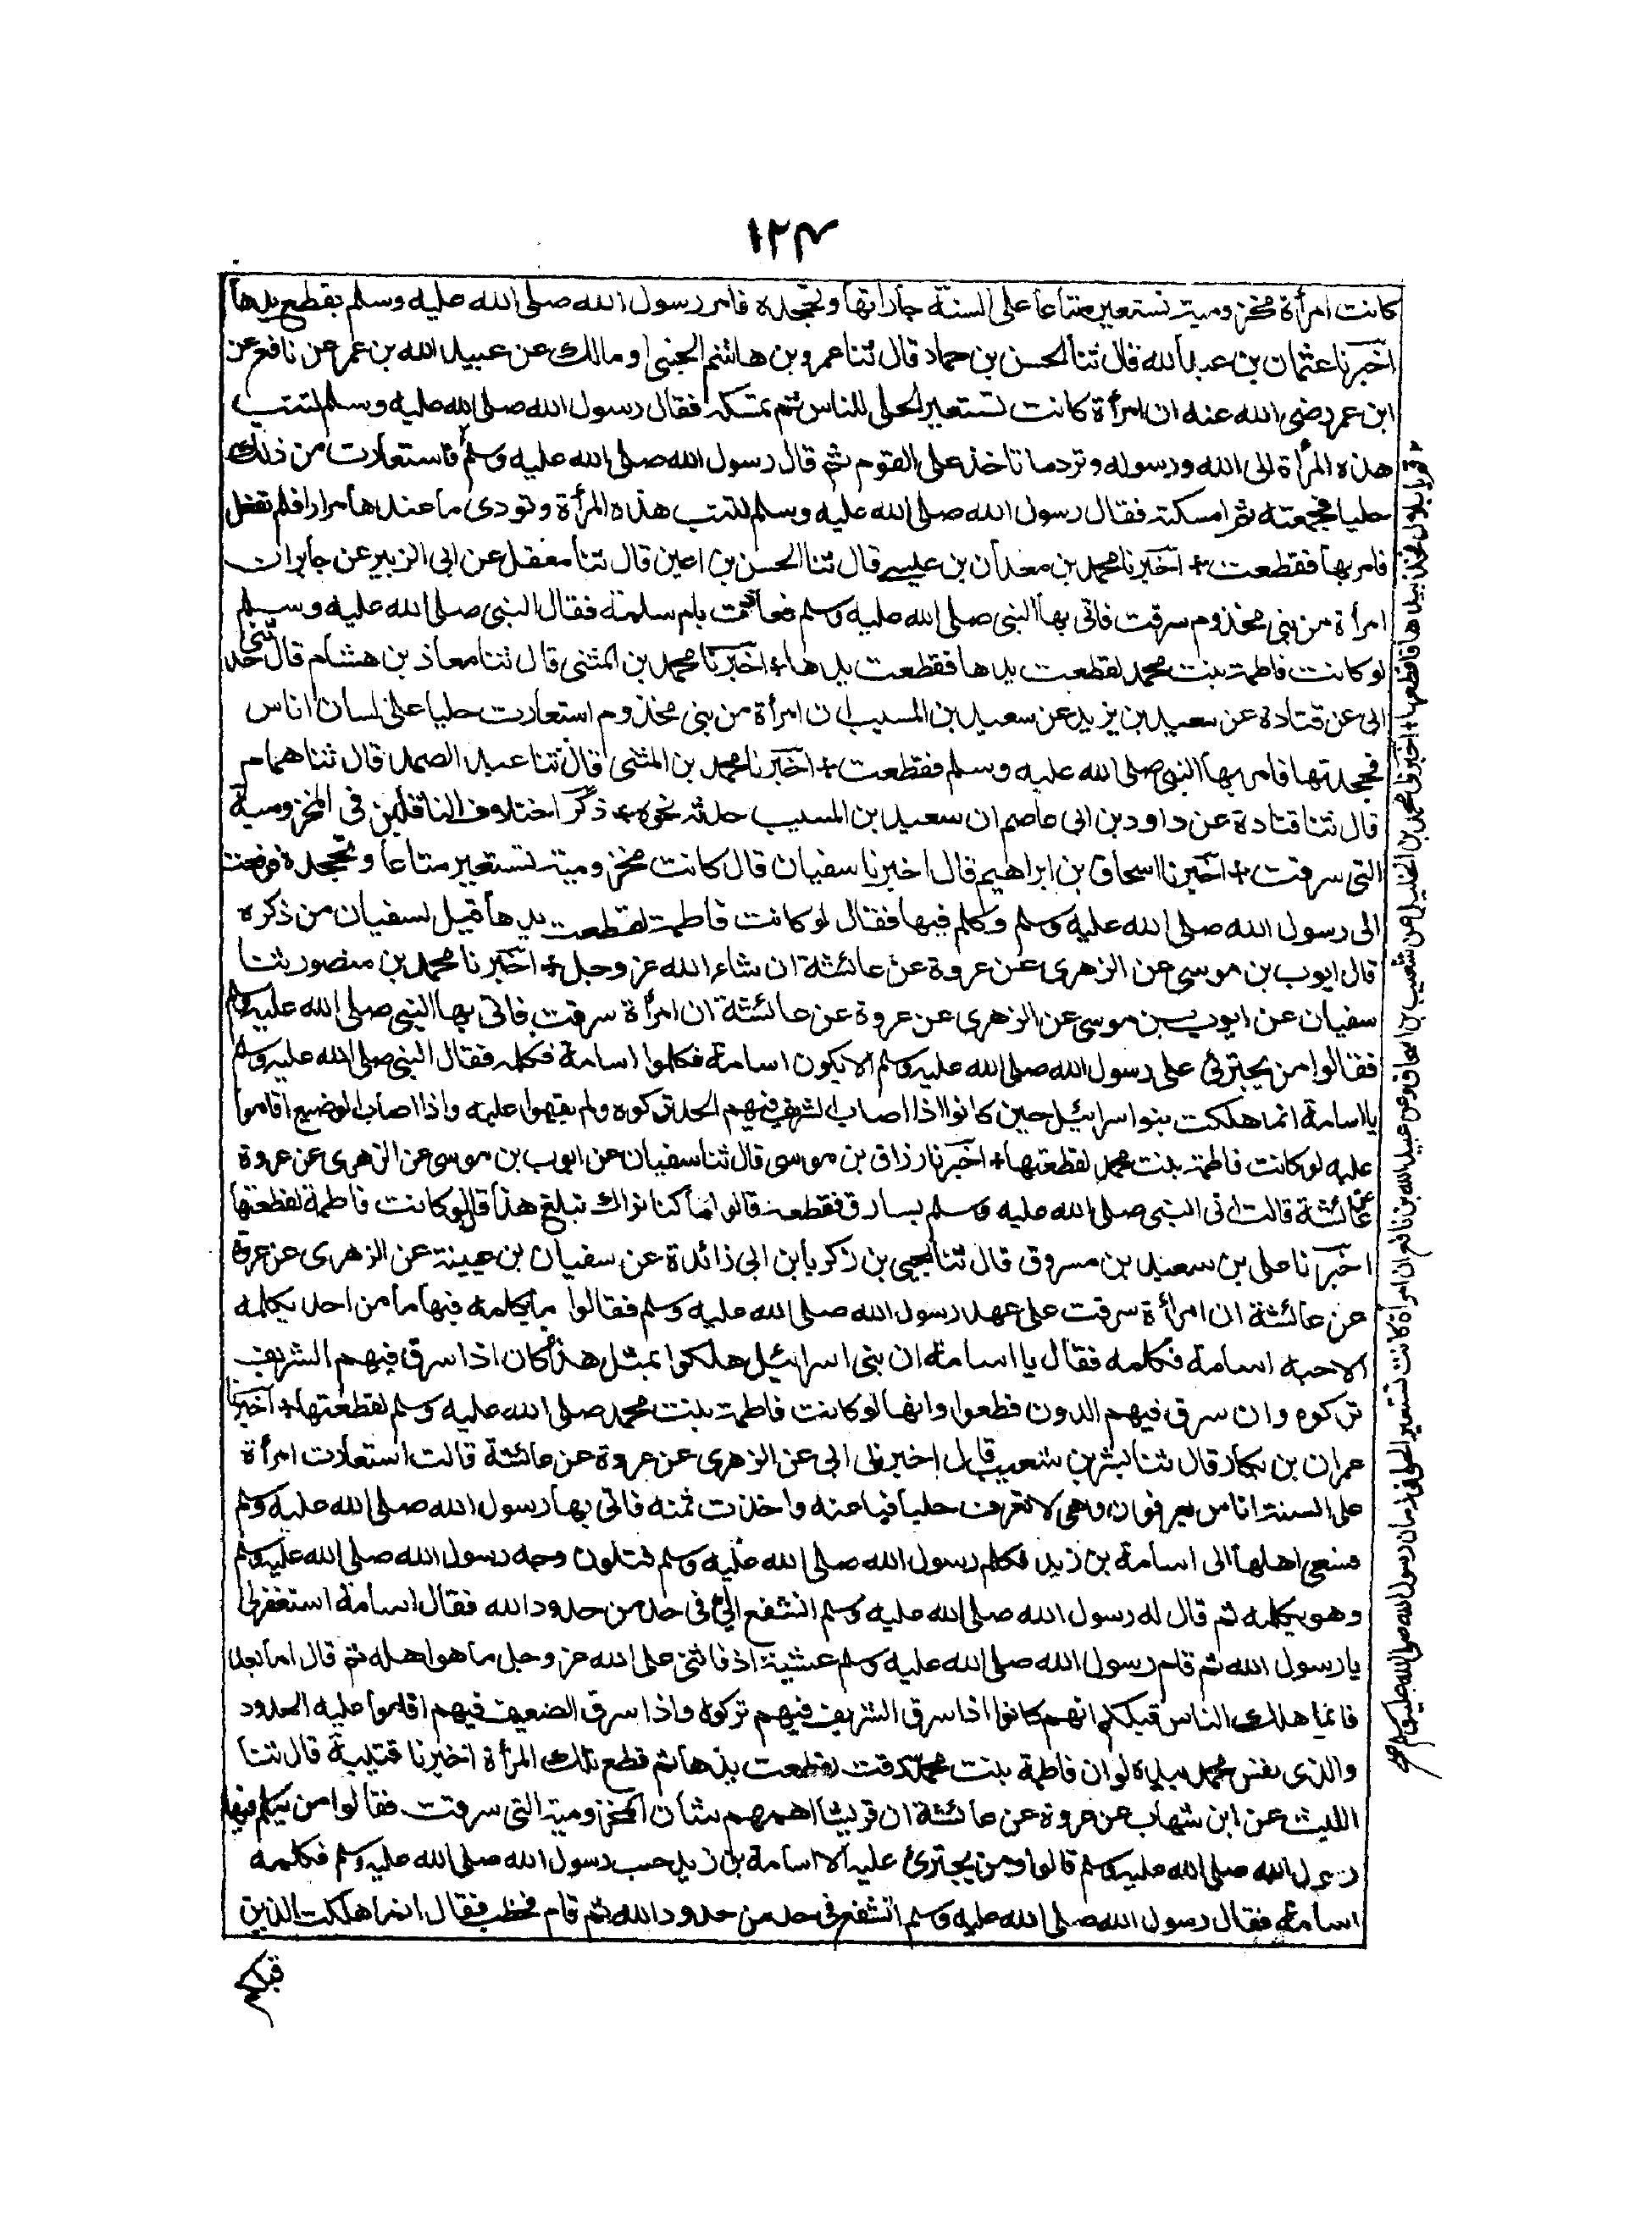 ١٢٤
كانت امرأة مخزومية تستعير متاعا على السنة جاراتها وتجحده فامر رسول الله صلى الله عليه وسلم بقطع يدها
اخبرنا عثمان بن عبد الله قال ثنا الحسن بن حماد قال ثنا عمرو بن هاشم الجنبي او مالك عن عبيد الله بن عمر عن نافع عن
ابن عمر رضى الله عنه ان امرأة كانت تستعير الحلى للناس ثم تمسكه فقال رسول الله صلى الله عليه وسلم لتتب
هذه المرأة الى الله ورسوله وترد ما تاخذ على القوم ثم قال رسول الله صلى الله عليه وسلم فاستعارت من ذلك
حليا فجمعته ثم امسكته فقال رسول الله صلى الله عليه وسلم لتتب هذه المرأة وتودى ما عندها مرارا فلم تفعل
فامر بها فقطعت + اخبرنا محمد بن معدان بن عيسى قال ثنا الحسن بن اعين قال ثنا معقل عن ابى الزبير عن جابر ان
امرأة من بنى مخذوم سرقت فاتى بها النبى صلى الله عليه وسلم فعاذت بام سلمة فقال النبى صلى الله عليه وسلم
لو كانت فاطمة بنت محمد لقطعت يدها فقطعت يدها + اخبرنا محمد بن المثنى قال ثنا معاذ بن هشام قال حدثنى
ابى عن قتادة عن سعيد بن يزيد عن سعيد بن المسيب ان امرأة من بنى مخذوم استعارت حليا على لسان اناس
فجحدتها فامر بها النبى صلى الله عليه وسلم فقطعت + اخبرنا محمد بن المثنى قال ثنا عبد الصمد قال ثنا همام
قال ثنا قتادة عن داود بن ابى عاصم ان سعيد بن المسيب حدثه نحوه + ذكر اختلاف الناقلين فى المخزومية
التى سرقت + اخبرنا اسحاق بن ابراهيم قال اخبرنا سفيان قال كانت مخزومية تستعير متاعا وتجحده فرفعت
الى رسول الله صلى الله عليه وسلم وكلم فيها فقال لو كانت فاطمة لقطعت يدها قيل لسفيان من ذكره
قال ايوب بن موسى عن الزهرى عن عروة عن عائشة ان شاء الله عز وجل + اخبرنا محمد بن منصور ثنا
سفيان عن ايوب بن موسى عن الزهرى عن عروة عن عائشة ان امرأة سرقت فاتى بها النبى صلى الله عليه وسلم
فقالوا من يجترئ على رسول الله صلى الله عليه وسلم الا يكون اسامة فكلموا اسامة فكلمه فقال النبى صلى الله عليه وسلم
يا اسامة انما هلكت بنو اسرائيل حين كانوا اذا اصاب الشريف فيهم الحد تركوه ولم يقيموا عليه واذا اصاب الوضيع اقاموا
عليه لو كانت فاطمة بنت محمد لقطعتها + اخبرنا رزاق بن موسى قال ثنا سفيان عن ايوب بن موسى عن الزهرى عن عروة
عن عائشة قالت اتى النبى صلى الله عليه وسلم بسارق فقطعه قالوا ما كنا نراك تبلغ هذا قال لو كانت فاطمة لقطعتها
اخبرنا على بن سعيد بن مسروق قال ثنا يحيى بن زكريا بن ابى زائدة عن سفيان بن عيينة عن الزهرى عن عروة
عن عائشة ان امرأة سرقت على عهد رسول الله صلى الله عليه وسلم فقالوا ما يكلمه فيها ما من احد يكلمه
الا حبه اسامة فكلمه فقال يا اسامة ان بنى اسرائيل هلكوا بمثل هذا كان اذا سرق فيهم الشريف
تركوه وان سرق فيهم الدون قطعوا وانها لو كانت فاطمة بنت محمد صلى الله عليه وسلم لقطعتها + اخبرنا
عمران بن بكار قال ثنا بشر بن شعيب قال اخبرنى ابى عن الزهرى عن عروة عن عائشة قالت استعارت امرأة
على السنة اناس يعرفون وهى لا تعرف حليا فباعته واخذت ثمنه فاتى بها رسول الله صلى الله عليه وسلم
فسعى اهلها الى اسامة بن زيد فكلم رسول الله صلى الله عليه وسلم فتلون وجه رسول الله صلى الله عليه وسلم
وهو يكلمه ثم قال له رسول الله صلى الله عليه وسلم اتشفع الى فى حد من حدود الله فقال اسامة استغفر لى
يا رسول الله ثم قام رسول الله صلى الله عليه وسلم عشيتئذ فاثنى على الله عز وجل ما هو اهله ثم قال اما بعد
فانما هلك الناس قبلكم انهم كانوا اذا سرق الشريف فيهم تركوه واذا سرق الضعيف فيهم اقاموا عليه الحدود
والذى نفس محمد بيده لو ان فاطمة بنت محمد سرقت لقطعت يدها ثم قطع تلك المرأة اخبرنا قتيبة قال ثنا
الليث عن ابن شهاب عن عروة عن عائشة ان قريشا اهمهم شان المخزومية التى سرقت فقالوا من يكلم فيها
رسول الله صلى الله عليه وسلم قالوا ومن يجترئ عليه الا اسامة بن زيد حب رسول الله صلى الله عليه وسلم فكلمه
اسامة فقال رسول الله صلى الله عليه وسلم اتشفع فى حد من حدود الله ثم قام فخطب فقال انما هلكت الذين
قبلكم
قم يا بلال فخذ بيدها فاقطعها + اخبرنى محمد بن الخليل عن شعيب بن اسحاق عن عبيد الله بن نافع ان امرأة كانت تستعير الحلى فى زمان رسول الله صلى الله عليه وسلم